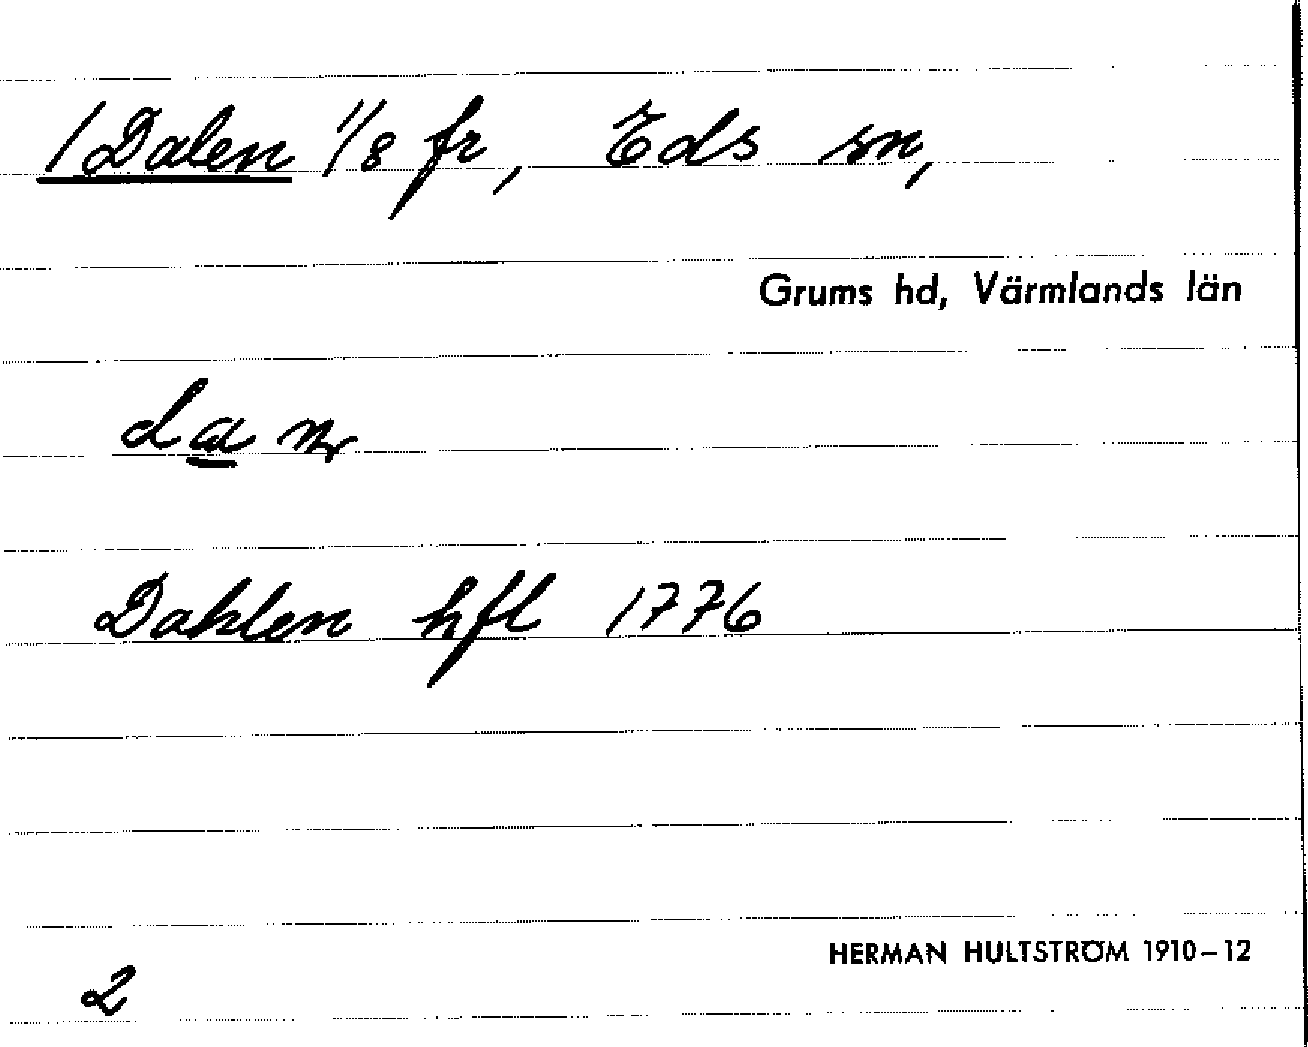 /Dalen 1/8 fr, Eds sn,
Grums hd, Värmlands län
Dahlen hfl 1776
HERMAN HULTSTRÖM 1910–12
2